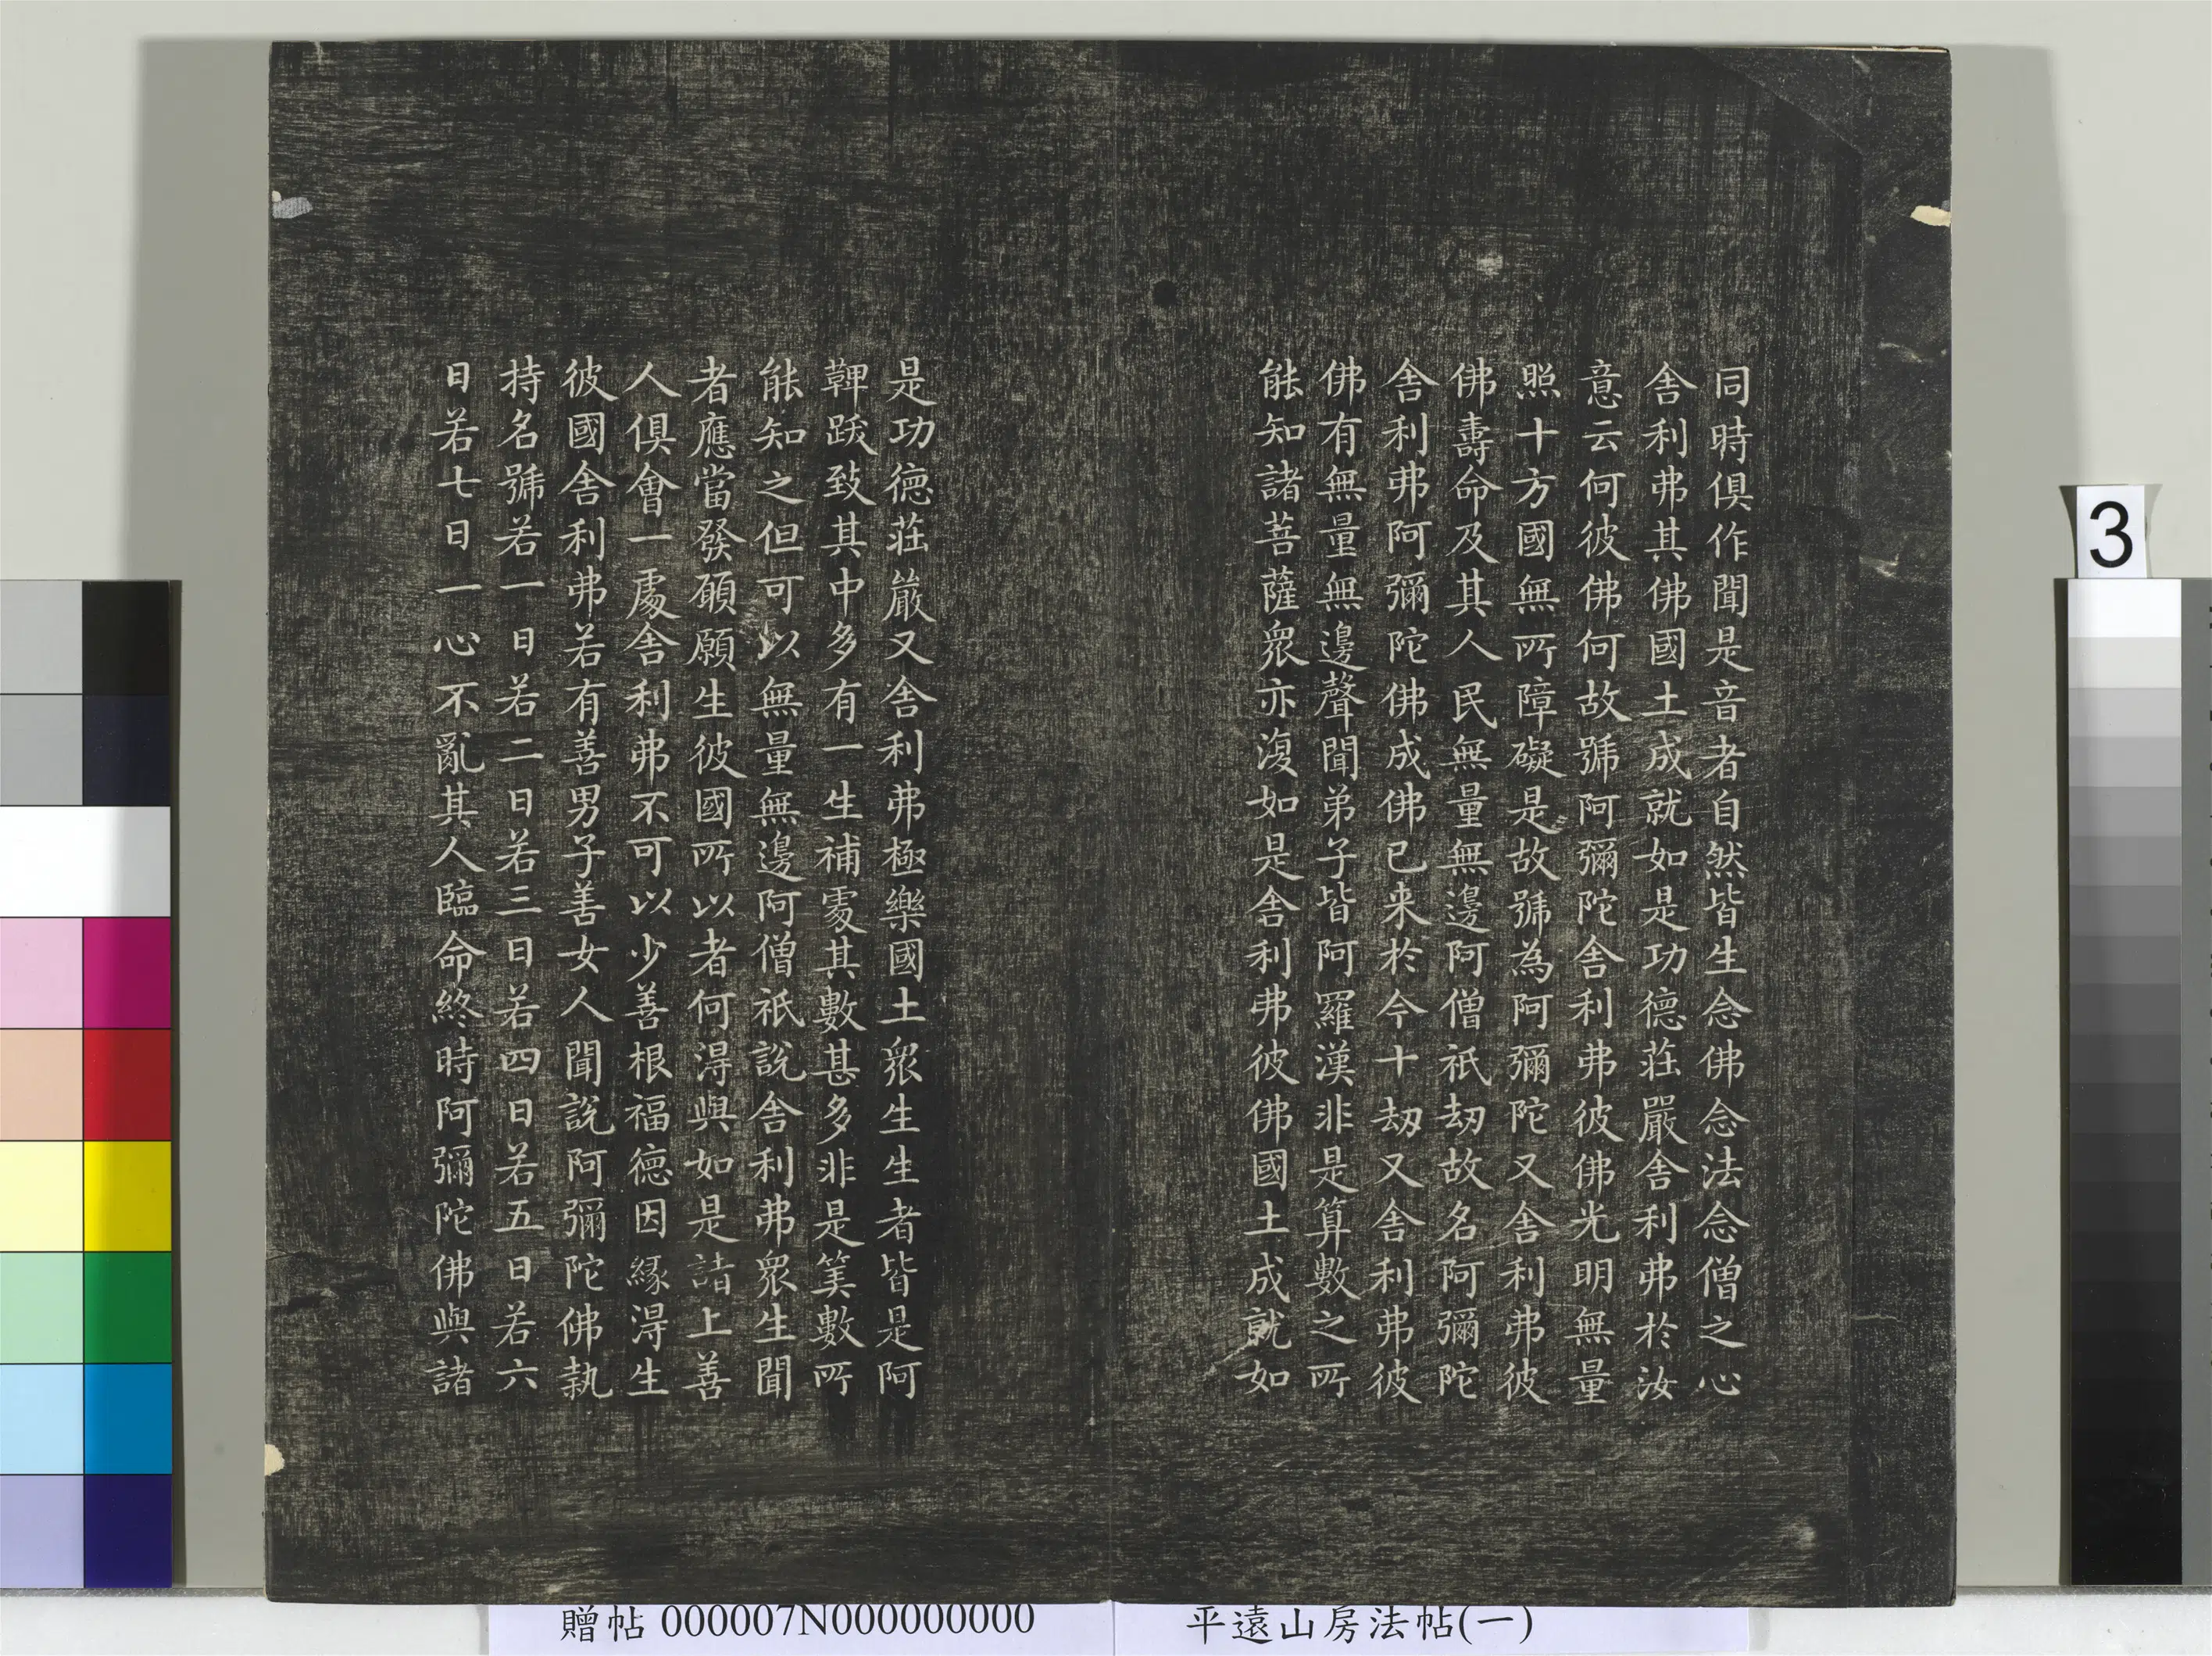 同時俱作聞是音者自然皆生念佛念法念僧之心
舍利弗其佛國土成就如是功德莊嚴舍利弗於汝
意云何彼佛何故號阿彌陀舍利弗彼佛光明無量
照十方國無所障礙是故號為阿彌陀又舍利弗彼
佛壽命及其人民無量無邊阿僧祇劫故名阿彌陀
舍利弗阿彌陀佛成佛已来於今十劫又舍利弗彼
佛有無量無邊聲聞弟子皆阿羅漢非是算數之所
能知諸菩薩眾亦復如是舍利弗彼佛國土成就如
是功德莊嚴又舍利弗極樂國土眾生生者皆是阿
鞞跋致其中多有一生補處其數甚多非是筭數所
能知之但可以無量無邊阿僧祇說舍利弗眾生聞
者應當發願願生彼國所以者何得與如是諸上善
人俱會一處舍利弗不可以少善根福德因緣得生
彼國舍利弗若有善男子善女人聞說阿彌陀佛執
持名號若一日若二日若三日若四日若五日若六
日若七日一心不亂其人臨命終時阿彌陀佛與諸
3
贈帖 000007N000000000
平遠山房法帖(一)